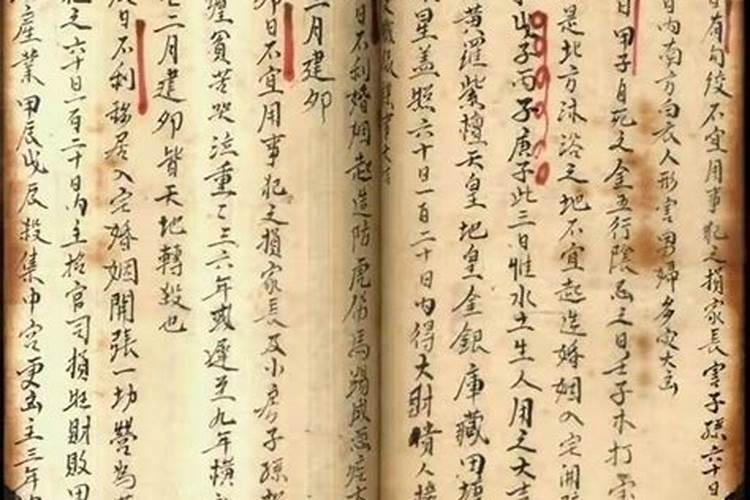 日有勾絞不宜用事犯之損家長害子孫六十日
日内南方白衣人刑害男婦多災大凶
日甲子自死之金五行陰忌之日壬子木打
是北方沐浴之地不宜起造婚姻入宅開
子戊子丙子庚子此三日惟水土生人用之大吉
黄羅紫檀天皇地皇金銀庫藏田塘
星蓋照六十日一百二十日内得大財貴人接
日不利婚姻起造防虎傷馬踢成惡疾
二月建卯
卯日不宜用事犯之損家長及小房子孫
纏貧苦哭泣重重三六年或遲至九年横
二月建卯皆天地轉殺也
日不利移居入宅婚姻開張一切營為
犯之六十日一百二十日内主招官司損賍財敗田
産業甲辰戊辰殺集中宫更凶主三年